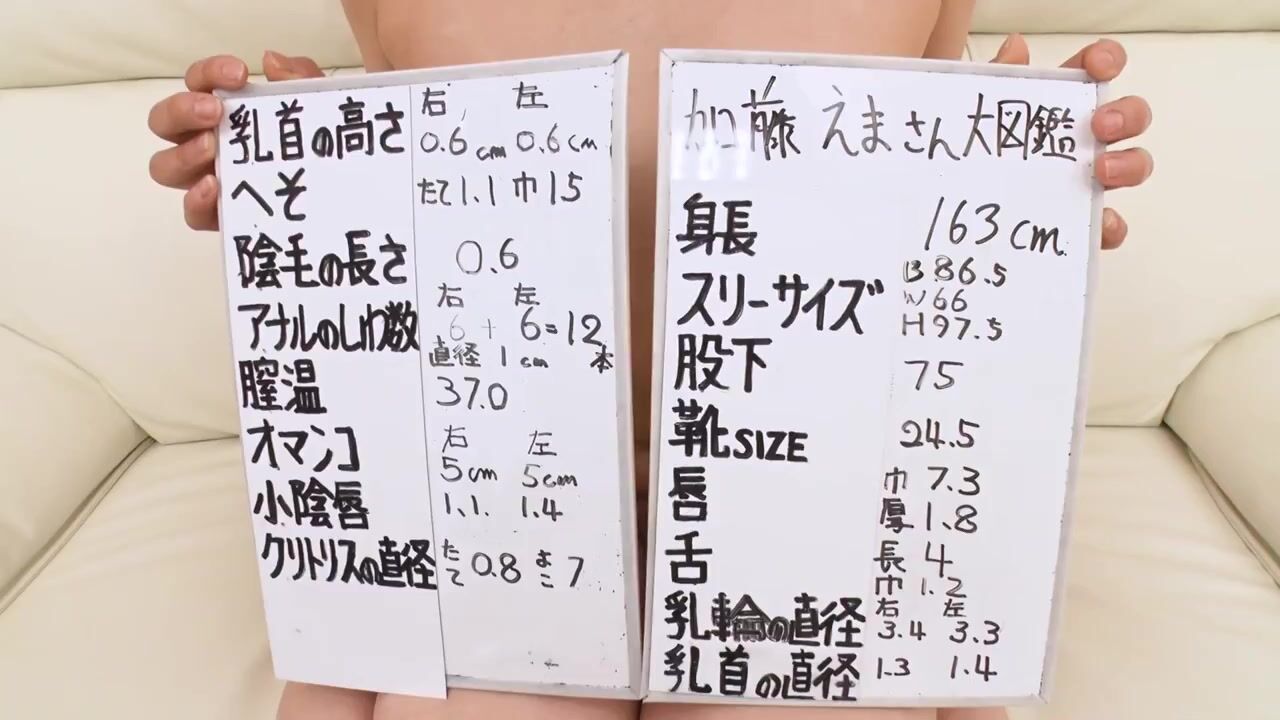 加藤えまさん大図鑑
身長 163cm
スリーサイズ B86.5
W66
H97.5
股下 75
靴SIZE 24.5
唇 巾 7.3
厚 1.8
舌 長 4
巾 1.2
右 左
乳輪の直径 3.4 3.3
乳首の直径 1.3 1.4
右 左
乳首の高さ 0.6cm 0.6cm
へそ たて1.1 巾15
陰毛の長さ 0.6
右 左
アナルのしわ数 6+6=12本
直径 1cm
膣温 37.0
右 左
オマンコ 5cm 5cm
小陰唇 1.1. 1.4
クリトリスの直径 たて0.8 よこ7